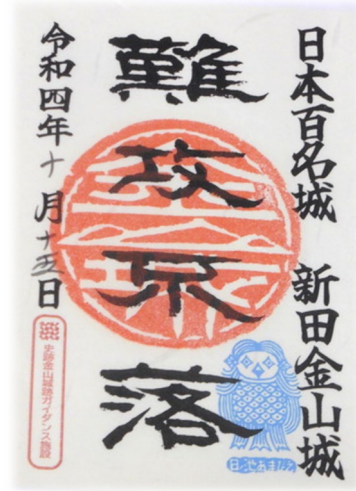 日本百名城 新田金山城
難攻不落
令和四年十月十五日
史跡金山城跡ガイダンス施設